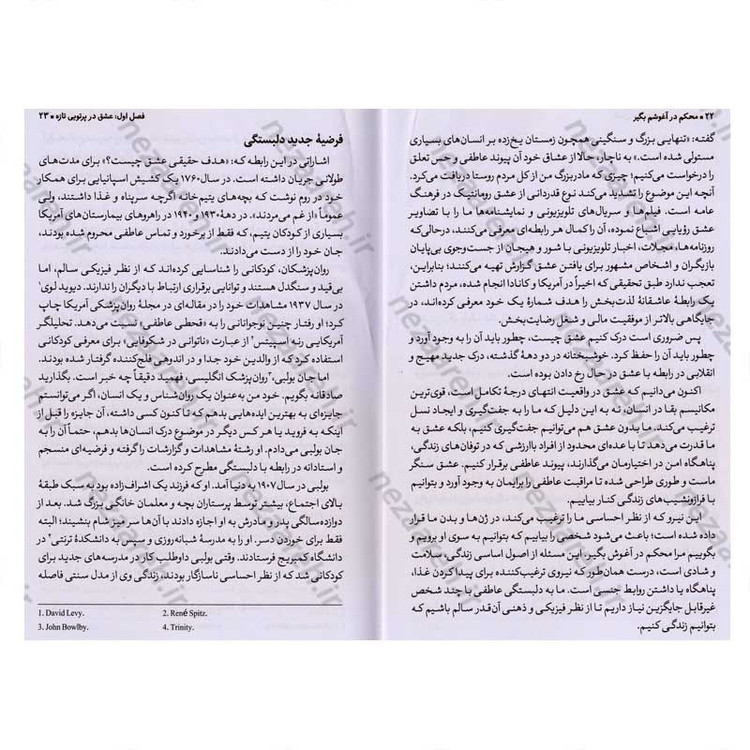 ۲۲ • محکم در آغوشم بگیر
گفته: «تنهایی بزرگ و سنگینی همچون زمستان یخ‌زده بر انسان‌های بسیاری
مستولی شده است.» به ناچار، حالا از عشاق خود آن پیوند عاطفی و حس تعلق
را درخواست می‌کنیم؛ چیزی که مادربزرگ من از کل مردم روستا دریافت می‌کرد.
آنچه این موضوع را تشدید می‌کند نوع قدردانی از عشق رومانتیک در فرهنگ
عامه است. فیلم‌ها و سریال‌های تلویزیونی و نمایشنامه‌ها ما را با تصاویر
عشق رؤیایی اشباع نموده، آن را کمال هر رابطه‌ای معرفی می‌کنند، درحالی‌که
روزنامه‌ها، مجلات، اخبار تلویزیونی با شور و هیجان از جست‌وجوی بی‌پایان
بازیگران و اشخاص مشهور برای یافتن عشق گزارش تهیه می‌کنند؛ بنابراین،
تعجب ندارد طبق تحقیقی که اخیراً در آمریکا و کانادا انجام شده، مردم داشتن
یک رابطهٔ عاشقانهٔ لذت‌بخش را هدف شمارهٔ یک خود معرفی کرده‌اند، در
جایگاهی بالاتر از موفقیت مالی و شغل رضایت‌بخش.
پس ضروری است درک کنیم عشق چیست، چطور باید آن را به وجود آورد و
چطور باید آن را حفظ کرد. خوشبختانه در دو دههٔ گذشته، درک جدید مهیج و
انقلابی در رابطه با عشق در حال رخ دادن بوده است.
اکنون می‌دانیم که عشق در واقعیت انتهای درجهٔ تکامل است، قوی‌ترین
مکانیسم بقا در انسان، نه به این دلیل که ما را به جفت‌گیری و ایجاد نسل
ترغیب می‌کند. ما بدون عشق هم می‌توانیم جفت‌گیری کنیم، بلکه عشق به
ما قدرت می‌دهد تا با عده‌ای محدود از افراد باارزشی که در توفان‌های زندگی،
پناهگاه امن در اختیارمان می‌گذارند، پیوند عاطفی برقرار کنیم. عشق سنگر
ماست و طوری طراحی شده تا مراقبت عاطفی را برایمان به وجود آورد و بتوانیم
با فرازونشیب‌های زندگی کنار بیاییم.
این نیرو که از نظر احساسی ما را ترغیب می‌کند، در ژن‌ها و بدن ما قرار
داده شده است؛ باعث می‌شود شخصی را بیابیم که بتوانیم به سوی او برویم و
بگوییم مرا محکم در آغوش بگیر. این مسئله از اصول اساسی زندگی، سلامت
و شادی است، درست همان‌طور که نیروی ترغیب‌کننده برای پیدا کردن غذا،
پناهگاه یا داشتن روابط جنسی است. ما به دلبستگی عاطفی با چند شخص
غیرقابل جایگزین نیاز داریم تا از نظر فیزیکی و ذهنی آن‌قدر سالم باشیم که
بتوانیم زندگی کنیم.
فصل اول: عشق در پرتویی تازه • ۲۳
فرضیهٔ جدید دلبستگی
اشاراتی در این رابطه که: «هدف حقیقی عشق چیست؟» برای مدت‌های
طولانی جریان داشته است. در سال ۱۷۶۰ یک کشیش اسپانیایی برای همکار
خود در روم نوشت که بچه‌های یتیم‌خانه اگرچه سرپناه و غذا داشتند، ولی
عموماً «از غم می‌مردند». در دههٔ ۱۹۳۰ و ۱۹۴۰ در راهروهای بیمارستان‌های آمریکا
بسیاری از کودکان یتیم، که فقط از برخورد و تماس عاطفی محروم شده بودند،
جان خود را از دست می‌دادند.
روان‌پزشکان، کودکانی را شناسایی کرده‌اند که از نظر فیزیکی سالم، اما
بی‌قید و سنگدل هستند و توانایی برقراری ارتباط با دیگران را ندارند. دیوید لوی¹
در سال ۱۹۳۷ مشاهدات خود را در مقاله‌ای در مجلهٔ روان‌پزشکی آمریکا چاپ
کرد؛ او رفتار چنین نوجوانانی را به «قحطی عاطفی» نسبت می‌دهد. تحلیلگر
آمریکایی رنه اسپیتس² از عبارت «ناتوانی در شکوفایی» برای معرفی کودکانی
استفاده کرد که از والدین خود جدا و در اندوهی فلج‌کننده گرفتار شده بودند.
اما جان بولبی،³ روان‌پزشک انگلیسی، فهمید دقیقاً چه خبر است. بگذارید
صادقانه بگویم. خود من به‌عنوان یک روان‌شناس و یک انسان، اگر می‌توانستم
جایزه‌ای به بهترین ایده‌هایی بدهم که تا کنون کسی داشته، آن جایزه را قبل از
اینکه به فروید یا هر کس دیگر در موضوع درک انسان‌ها بدهم، حتماً آن را به
جان بولبی می‌دادم. او رشتهٔ مشاهدات و گزارشات را گرفته و فرضیه‌ای منسجم
و استادانه در رابطه با دلبستگی مطرح کرده است.
بولبی در سال ۱۹۰۷ به دنیا آمد. او که فرزند یک اشراف‌زاده بود به سبک طبقهٔ
بالای اجتماع، بیشتر توسط پرستاران بچه و معلمان خانگی بزرگ شد. بعد از
دوازده‌سالگی پدر و مادرش به او اجازه دادند با آن‌ها سر میز شام بنشیند؛ البته
فقط برای خوردن دسر. او را به مدرسهٔ شبانه‌روزی و سپس به دانشکدهٔ ترنتی⁴ در
دانشگاه کمبریج فرستادند. وقتی بولبی داوطلب کار در مدرسه‌های جدید برای
کودکانی شد که از نظر احساسی ناسازگار بودند، زندگی وی از مدل سنتی فاصله
1. David Levy. 2. René Spitz.
3. John Bowlby. 4. Trinity.
nezaareh.ir